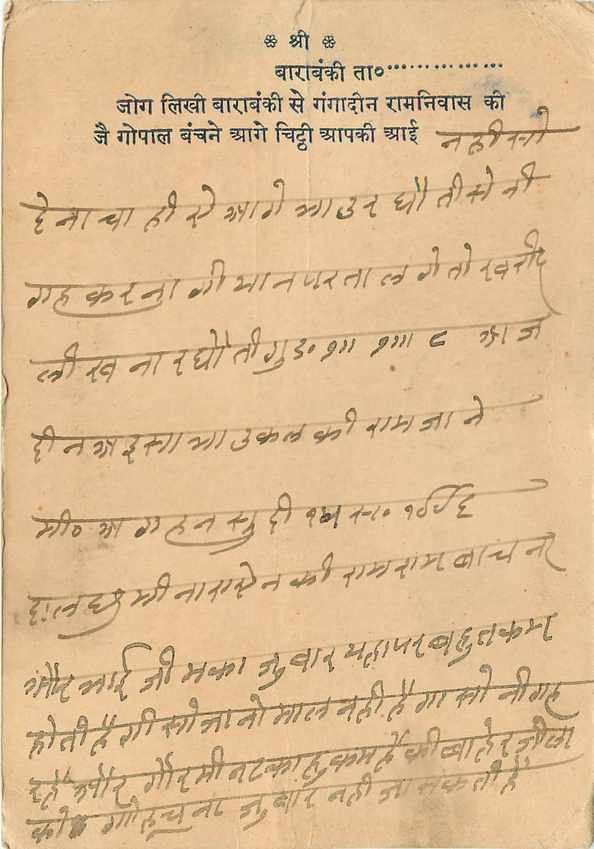 ❀ श्री ❀
बाराबंकी ता०··················
जोग लिखी बाराबंकी से गंगादीन रामनिवास की
जै गोपाल बंचने आगे चिट्ठी आपकी आई नही सो
देना चाही ऐ आगे भाउर धौती से नी
गह करना गी भान परताल गे तो खरीद
ली ख ना र धौ ती गुड० १॥ १॥। ८ आज
दीन अइसा भाउ कल की राम जाने
मी० अगहन सुदी स० १९९६
द॰ लछमी नाराऐन की राम राम बाचना
और भाई जी मका जुवार यहा पर बहुत कम
होती है गी सो जानो माल नही है गा सो नीगह
रहे और गौरमीनट का हुकम है की बाहेर जीला
को चना जुवार नही जा सकती है